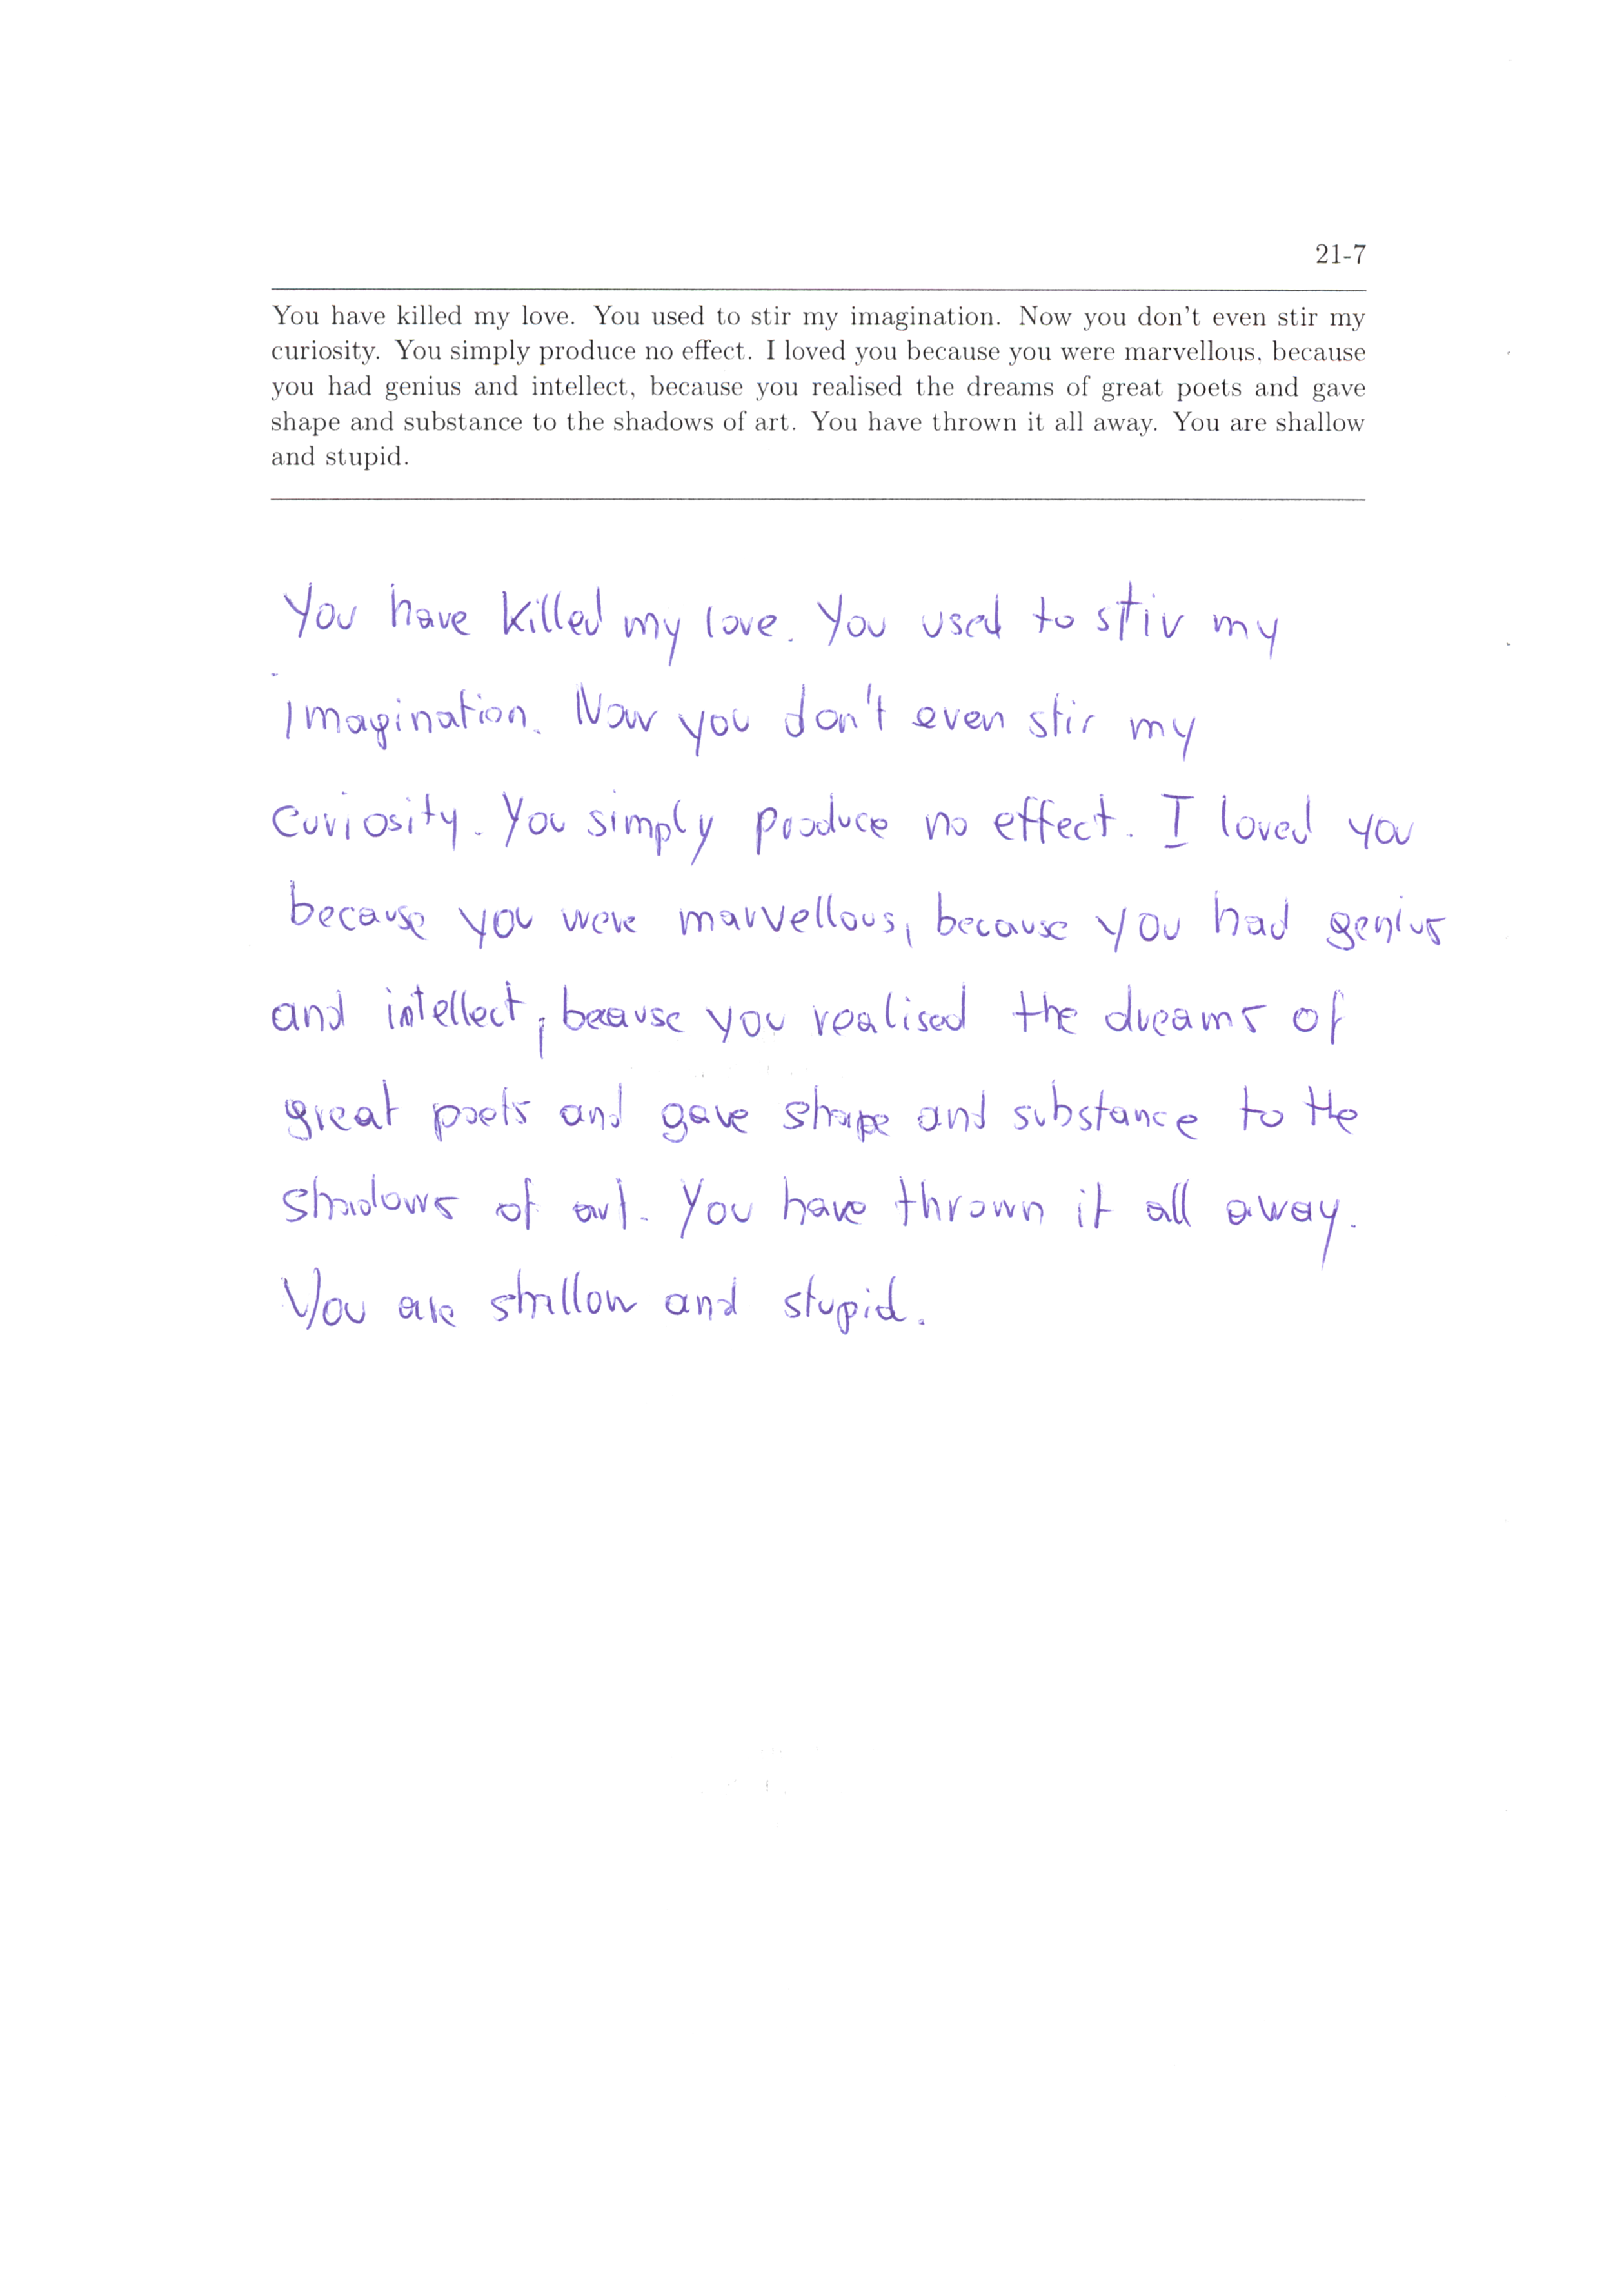 21-7
You have killed my love. You used to stir my imagination. Now you don't even stir my
curiosity. You simply produce no effect. I loved you because you were marvellous, because
you had genius and intellect, because you realised the dreams of great poets and gave
shape and substance to the shadows of art. You have thrown it all away. You are shallow
and stupid.
You have killed my love. You used to stir my
imagination. Now you don't even stir my
curiosity. You simply produce no effect. I loved you
because you were marvellous, because you had genius
and intellect, because you realised the dreams of
great poets and gave shape and substance to the
shadows of art. You have thrown it all away.
You are shallow and stupid.